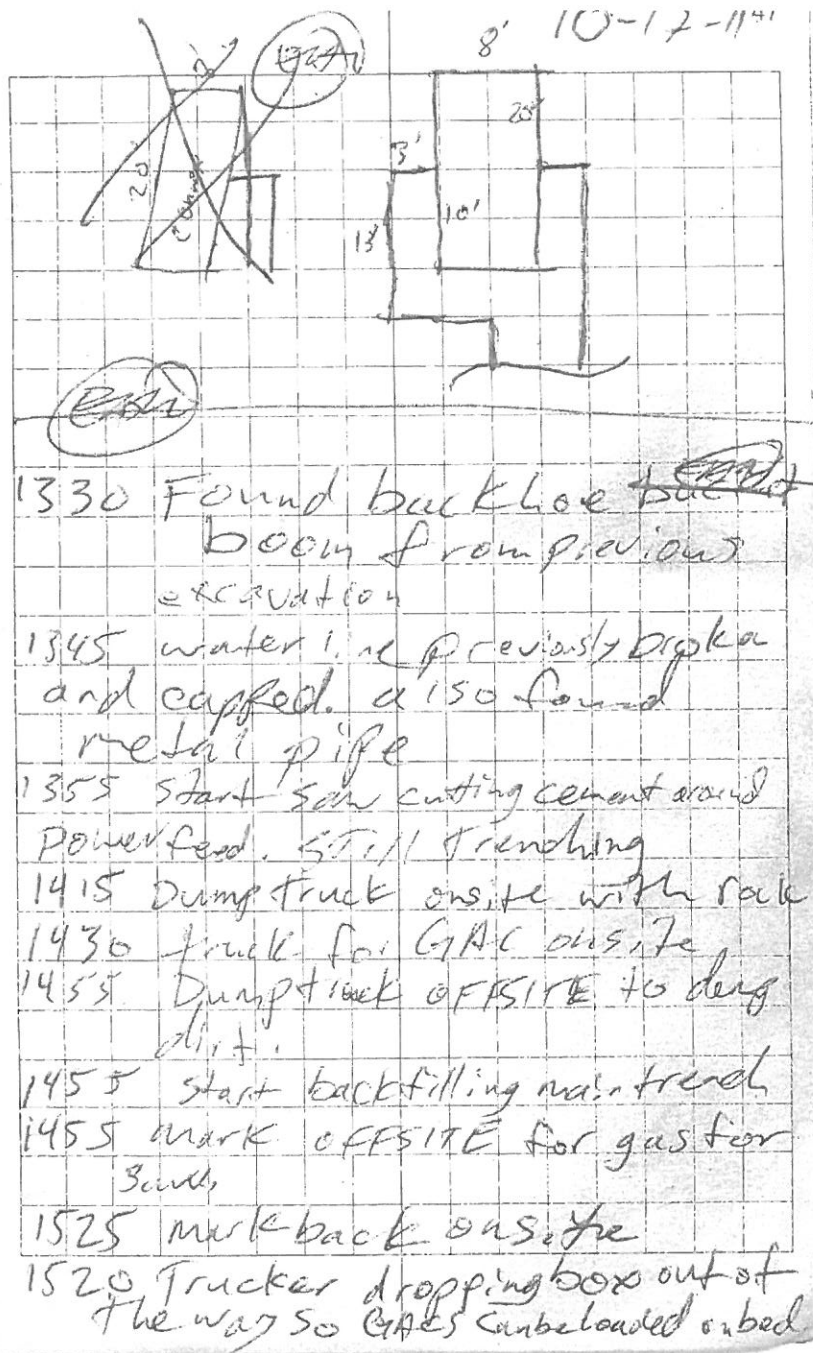 10-17-11
8'
20'
3'
10'
13'
20'
Connex
1330 Found backhoe
boom from previous
excavation
1345 water line previously broka
and capped. also found
metal pipe
1355 Start saw cutting cement around
power feed. STill Trenching
1415 Dump truck onsite with rock
1430 truck for GAC onsite
1455 Dumptruck OFFSITE to dump
dirt.
1455 Start backfilling main trench
1455 Mark OFFSITE for gas for
1525 Mark back onsite
1520 Trucker dropping box out of
the way so GACs can be loaded on bed